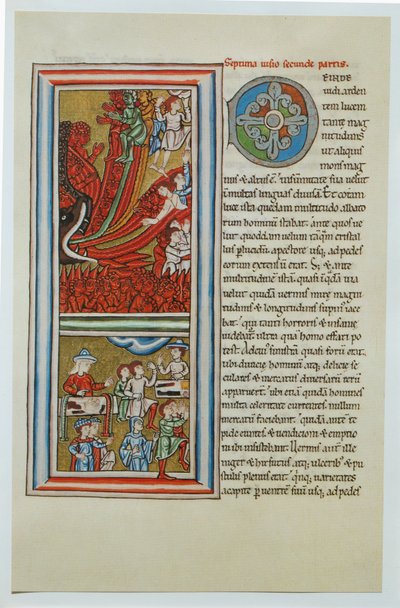 Septima uisio secunde partis.
EINDE
uidi arden
tem lucem
tante mag
nitudinis
ut aliquis
mons mag
nus et altus ē. in summitate sua uelut
in multas linguas diuisam. Et coram
luce ista quedam multitudo albato
rum hominum stabat. ante quos ue
lut quoddam uelum tamquam cristal
lus plucidum. a pectore usq; ad pedes
eorum extensum erat. S; & ante
multitudinem istam quasi in quadā uia
uelut quidā uermis mire magni
tudinis & longitudinis supinus iace
bat. qui tanti horroris & insanie
uidebatur ultra quā homo effari po
test. Ad cuius sinistram quasi forū erat.
ubi diuicie hominum atq; delicie se
culares & mercatus diuersarū rerū
apparuerunt. ubi etiā quidā homines
multa celeritate currentes nullum
mercatū faciebant. quidā autē te
pide euntes. & uendicioni & emptio
ni ibi insistebant. Vermis autē ille
niger & hirsutus atq; ulceribus & pu
stulis plenus erat. quinq; uarietates
a capite p uentrem suū usq; ad pedes